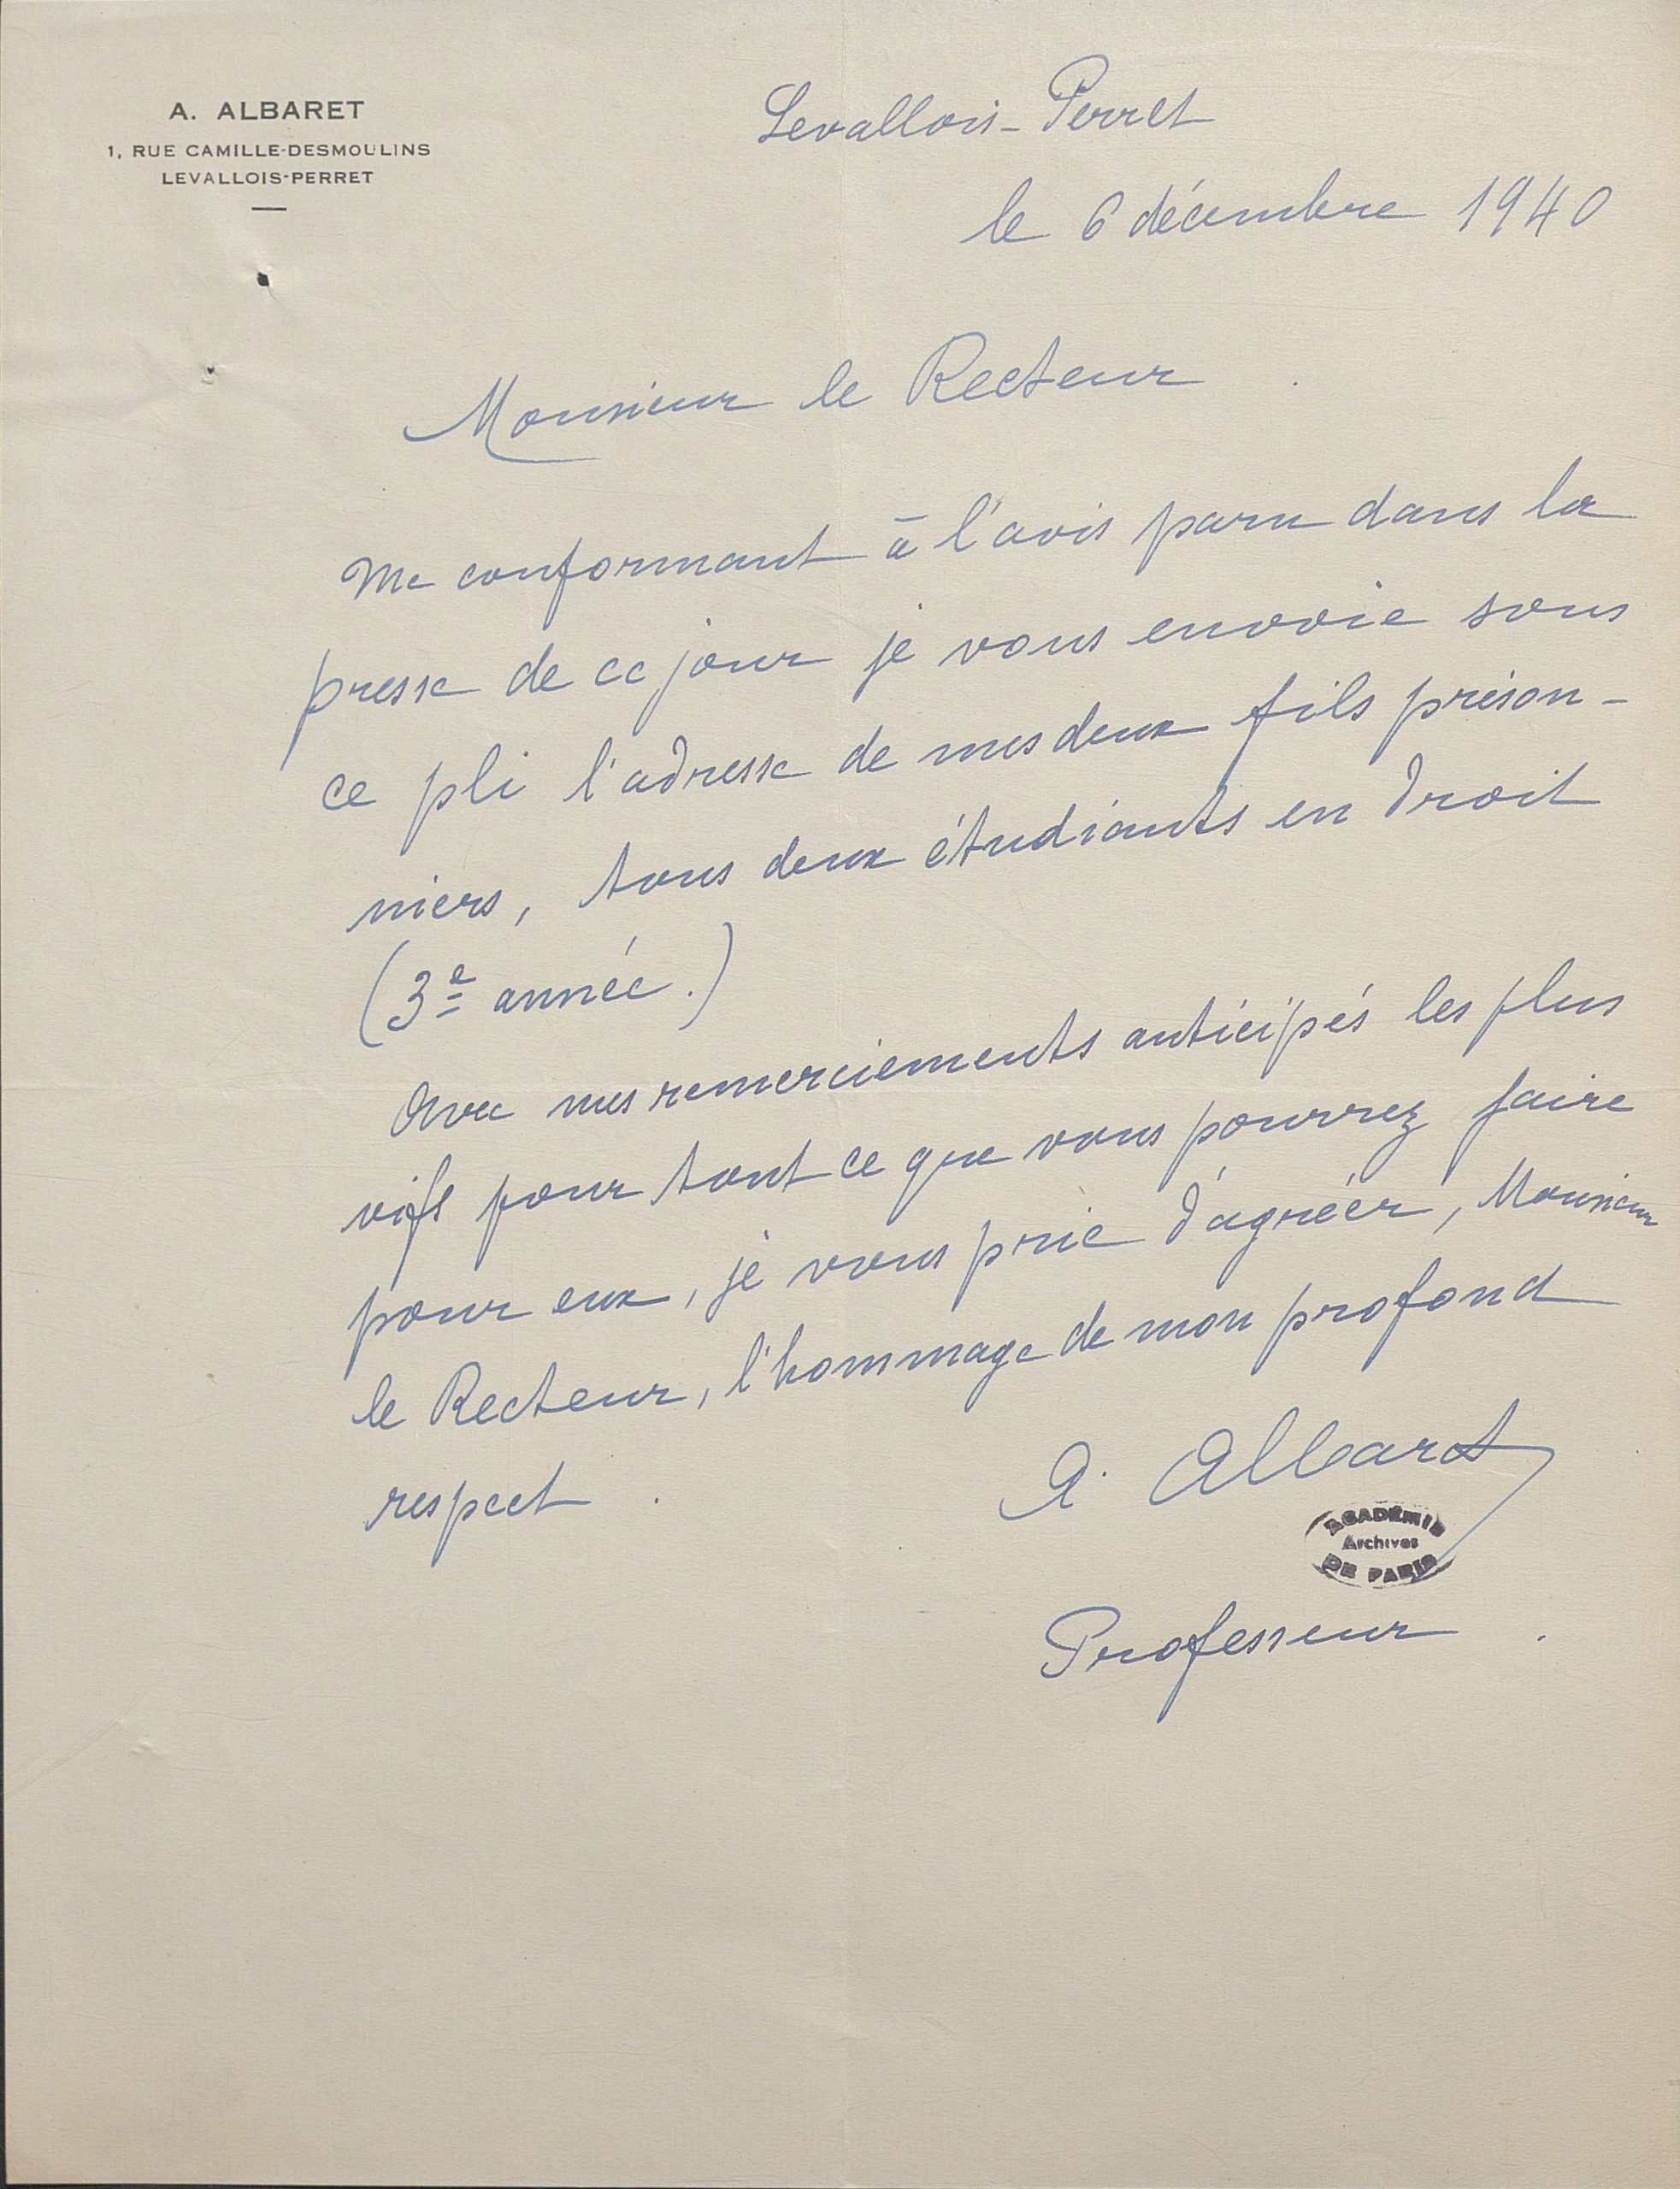 A. ALBARET
1, RUE CAMILLE-DESMOULINS
LEVALLOIS-PERRET
Levallois-Perret
le 6 décembre 1940
Monsieur le Recteur
Me conformant à l'avis paru dans la
presse de ce jour je vous envoie sous
ce pli l'adresse de mes deux fils prison-
niers, tous deux étudiants en droit
(3e année.)
Avec mes remerciements anticipés les plus
vifs pour tout ce que vous pourrez faire
pour eux, je vous prie d'agréer, Monsieur
le Recteur, l'hommage de mon profond
respect.
A. Albaret
ACADÉMIE
Archives
DE PARIS
Professeur.